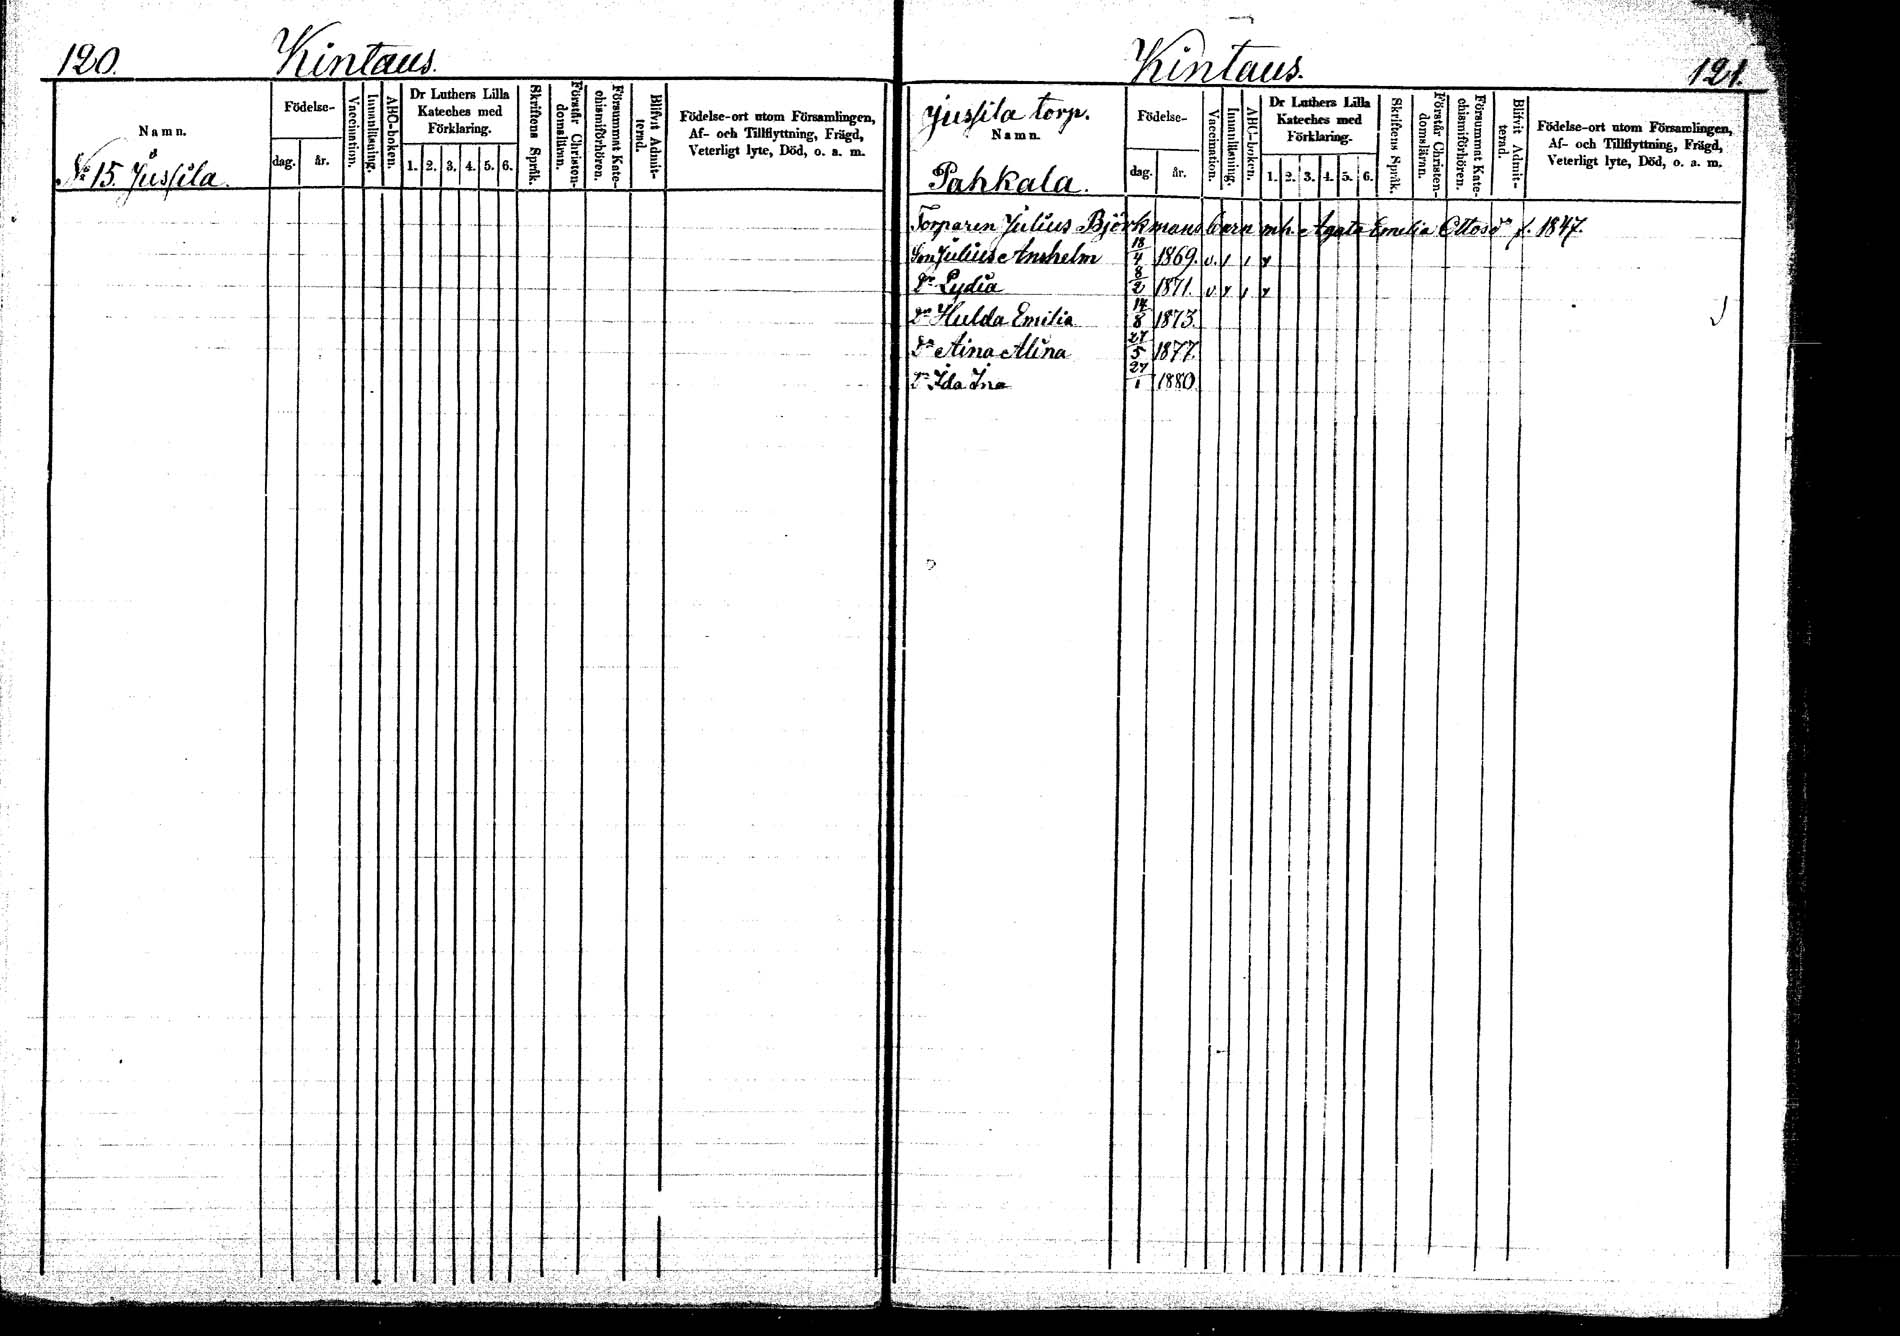 120. Kintaus.
Namn.
Nº 15. Jussila.
Födelse-
dag. år.
Vaccination.
Innanläsning.
ABC-boken.
Dr Luthers Lilla
Kateches med
Förklaring.
1. 2. 3. 4. 5. 6.
Skriftens Språk.
Förstår Christen-
domslärnn.
Försummat Kate-
chismiförhören.
Blifvit Admit-
terad.
Födelse-ort utom Församlingen,
Af- och Tillflyttning, Frägd,
Veterligt lyte, Död, o. a. m.
Kintaus. 121.
Jussila torp.
Namn.
Pahkala.
Födelse-
dag. år.
Vaccination.
Innanläsning.
ABC-boken.
Dr Luthers Lilla
Kateches med
Förklaring.
1. 2. 3. 4. 5. 6.
Skriftens Språk.
Förstår Christen-
domslärnn.
Försummat Kate-
chismiförhören.
Blifvit Admit-
terad.
Födelse-ort utom Församlingen,
Af- och Tillflyttning, Frägd,
Veterligt lyte, Död, o. a. m.
Torparen Julius Björkmans barn mh. Agata Emelia Ottosdr f. 1847.
Son Julius Anshelm 18/4 1869. v.
Dr Lydia 8/2 1871. v
Dr Hulda Emilia 14/8 1873.
Dr Aina Alina 27/5 1877.
Dr Ida Ina 27/1 1880.